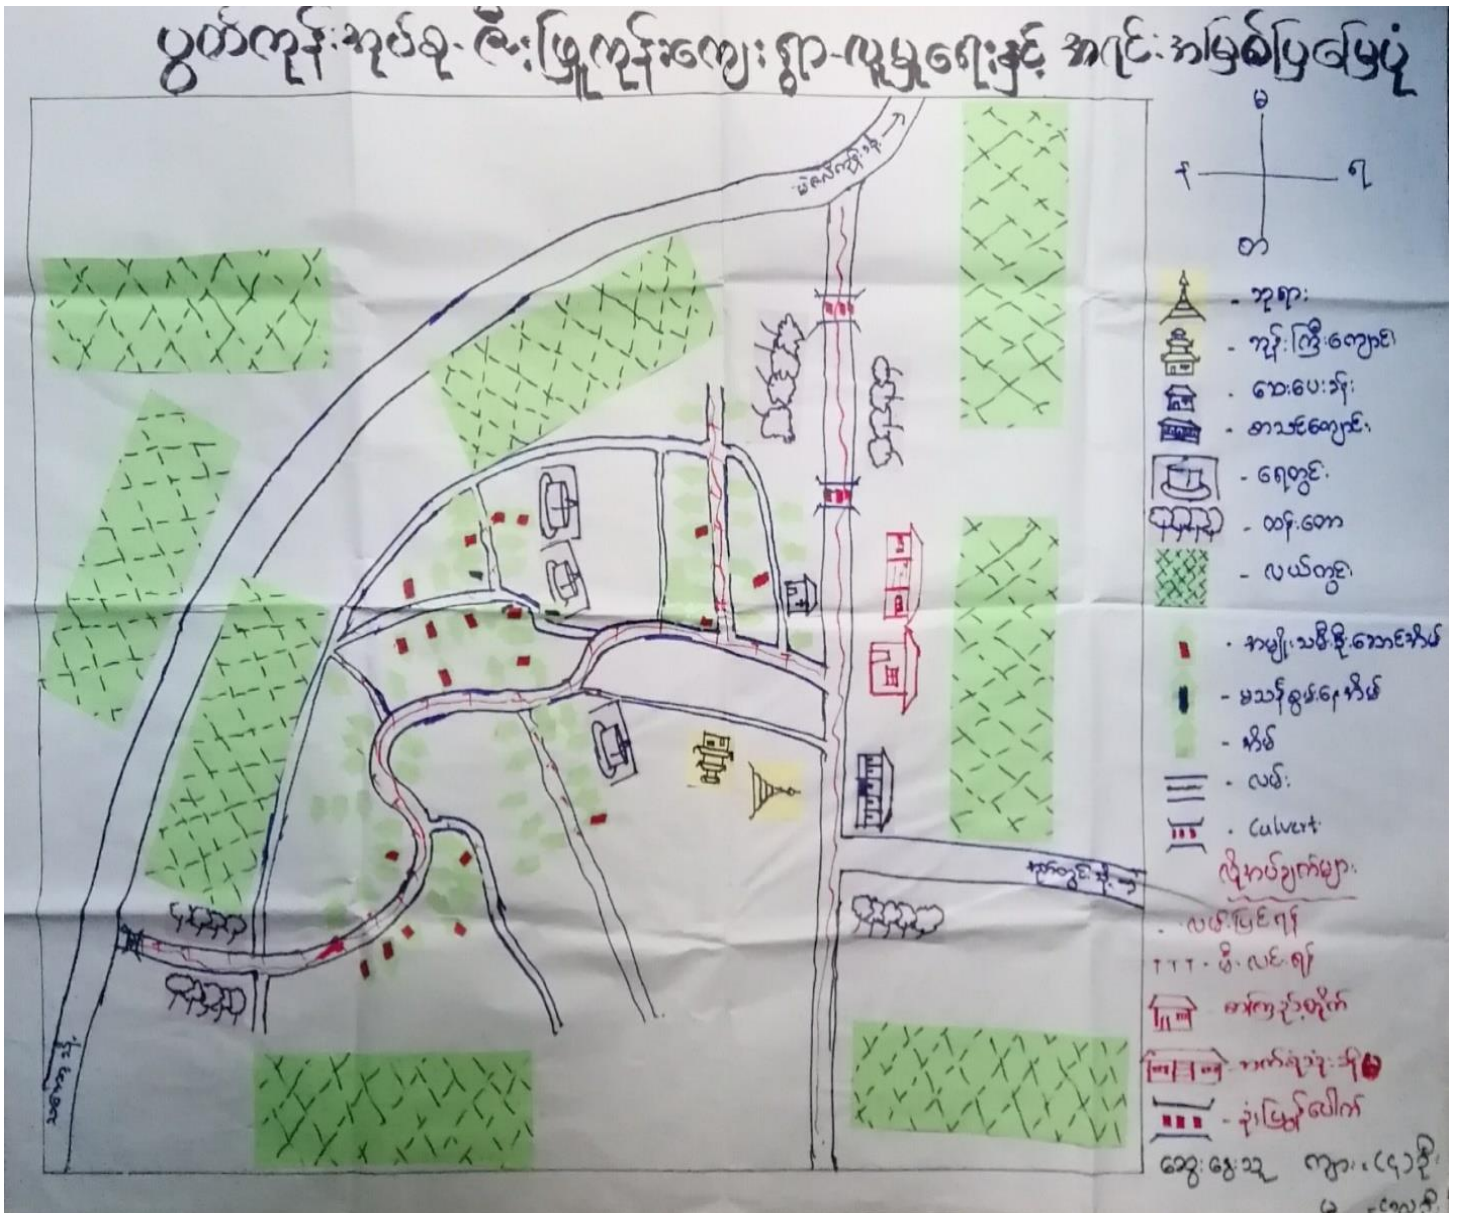 ပွတ်ကုန်းအုပ်စု - ဇီးဖြူကုန်းကျေးရွာ - လူမှုရေးနှင့် အရင်းအမြစ်ပြမြေပုံ
မ
န
ရ
တ
- ဘုရား
- ဘုန်းကြီးကျောင်း
- ဆေးပေးခန်း
- စာသင်ကျောင်း
- ရေတွင်း
- ထန်းတော
- လယ်ကွင်း
- အမျိုးသမီးဦးဆောင်အိမ်
- မသန်စွမ်းနေအိမ်
- အိမ်
- လမ်း
- Culvert
လိုအပ်ချက်များ
- လမ်းပြင်ရန်
- မီးလင်းရန်
စာကြည့်တိုက်
- ဘက်စုံသုံး
- နုံးမြှုပ်ပေါက်
ဆွေးနွေးသူ ကျား - (၄) ဦး
မ -